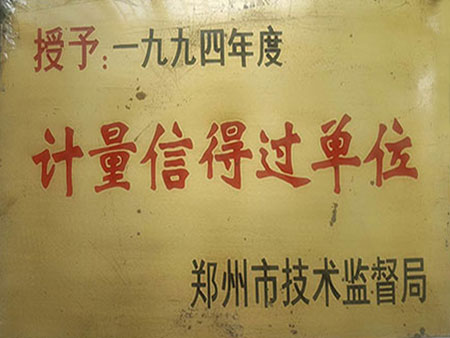 授予:一九九四年度
计量信得过单位
郑州市技术监督局